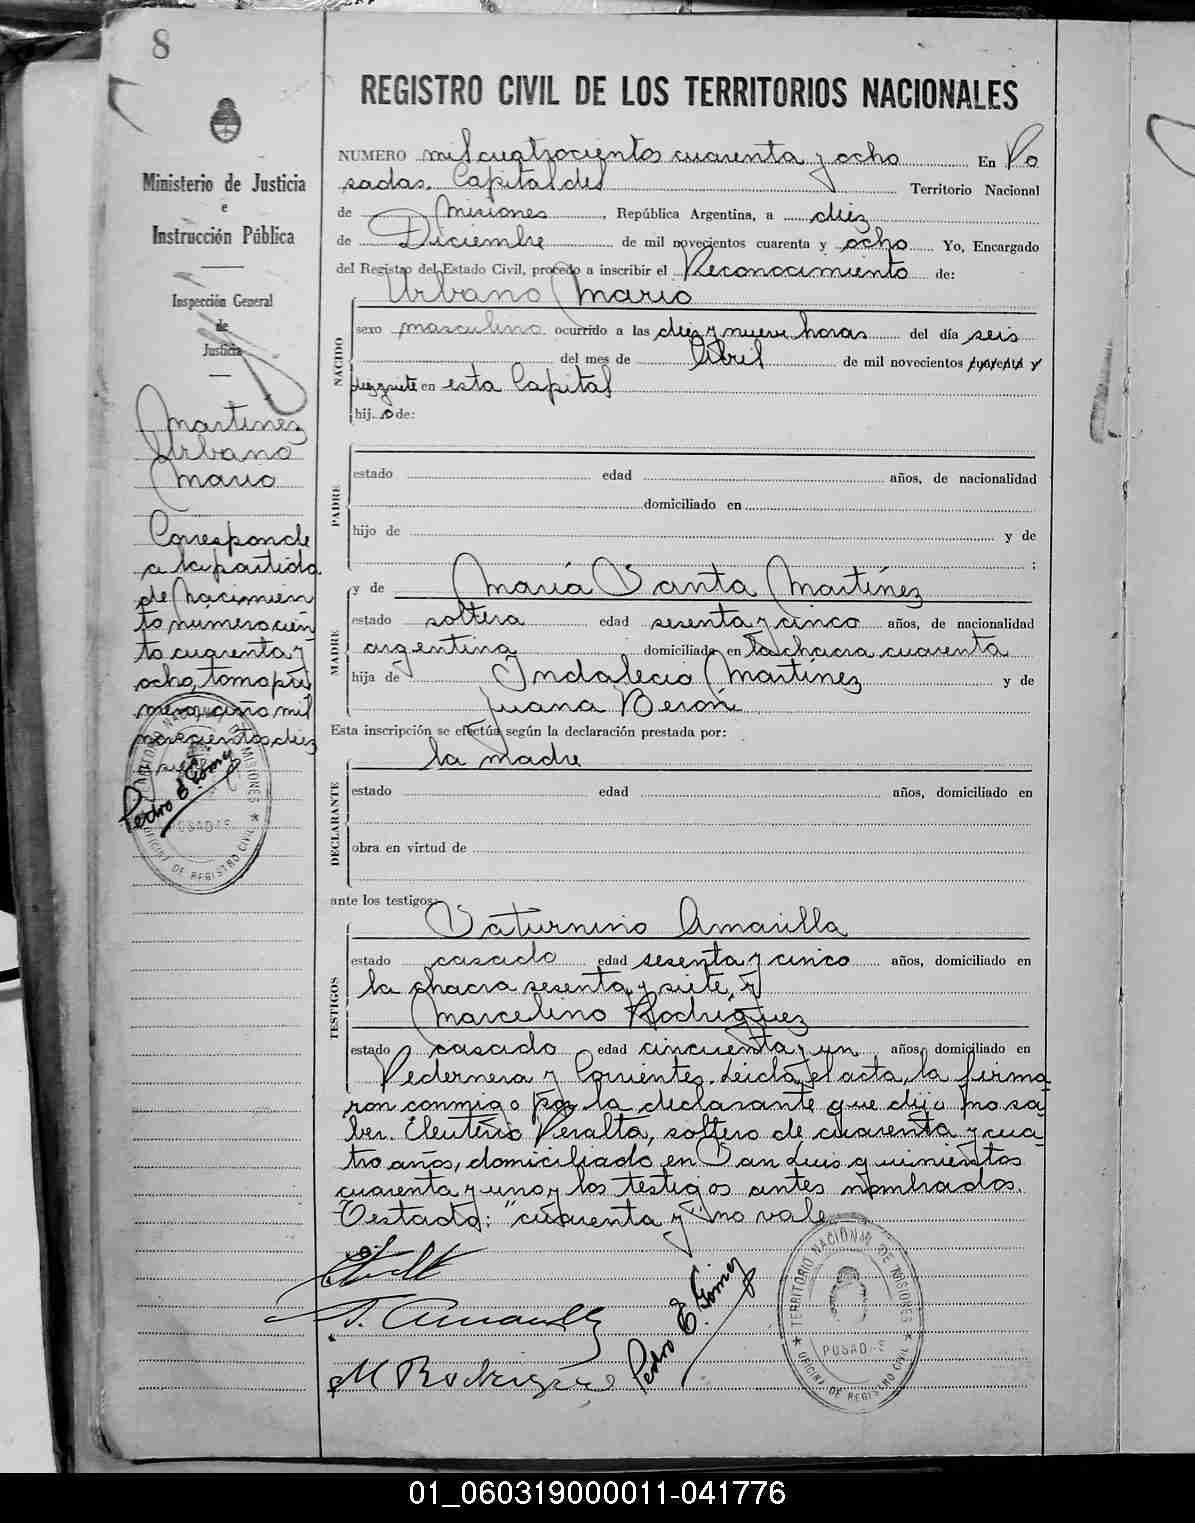 8
Ministerio de Justicia
e
Instrucción Pública
Inspección General
de
Justicia
Martinez
Urbano
Mario
Corresponde
a la partida
de Nacimien
to numero cien
to cuarenta y
ocho, tomo pri
mero, año mil
novecientos diez
y siete
Pedro E. Gómez
TERRITORIO NACIONAL DE MISIONES
POSADAS
OFICINA DE REGISTRO CIVIL
REGISTRO CIVIL DE LOS TERRITORIOS NACIONALES
NUMERO mil cuatrocientos cuarenta y ocho En Po
sadas. Capital del Territorio Nacional
de Misiones, República Argentina, a diez
de Diciembre de mil novecientos cuarenta y ocho Yo, Encargado
del Registro del Estado Civil, procedo a inscribir el Reconocimiento de:
Urbano Mario
NACIDO
sexo masculino ocurrido a las diez y nueve horas del día seis
del mes de Abril de mil novecientos cuarenta y
diez y siete en esta Capital
hijo de:
PADRE
estado edad años, de nacionalidad
domiciliado en
hijo de y de
;
MADRE
y de María Santa Martínez
estado soltera edad sesenta y cinco años, de nacionalidad
argentina domiciliada en la chacra cuarenta
hija de Indalecio Martínez y de
Juana Beron
Esta inscripción se efectúa según la declaración prestada por:
DECLARANTE
la madre
estado edad años, domiciliado en
obra en virtud de
ante los testigos:
TESTIGOS
Saturnino Amarilla
estado casado edad sesenta y cinco años, domiciliado en
la chacra sesenta y siete, y
Marcelino Rodríguez
estado casado edad cincuenta y un años, domiciliado en
Pedernera y Corrientes. Leida el acta, la firma
ron conmigo por la declarante que dijo no sa
ber. Eleuterio Peralta, soltero de cuarenta y cua
tro años, domiciliado en San Luis quinientos
cuarenta y uno y los testigos antes nombrados.
Testado: "cuarenta y" no vale
S. Amarilla
M Rodriguez
Pedro E. Gómez
TERRITORIO NACIONAL DE MISIONES
POSADAS
OFICINA DE REGISTRO CIVIL
01_060319000011-041776